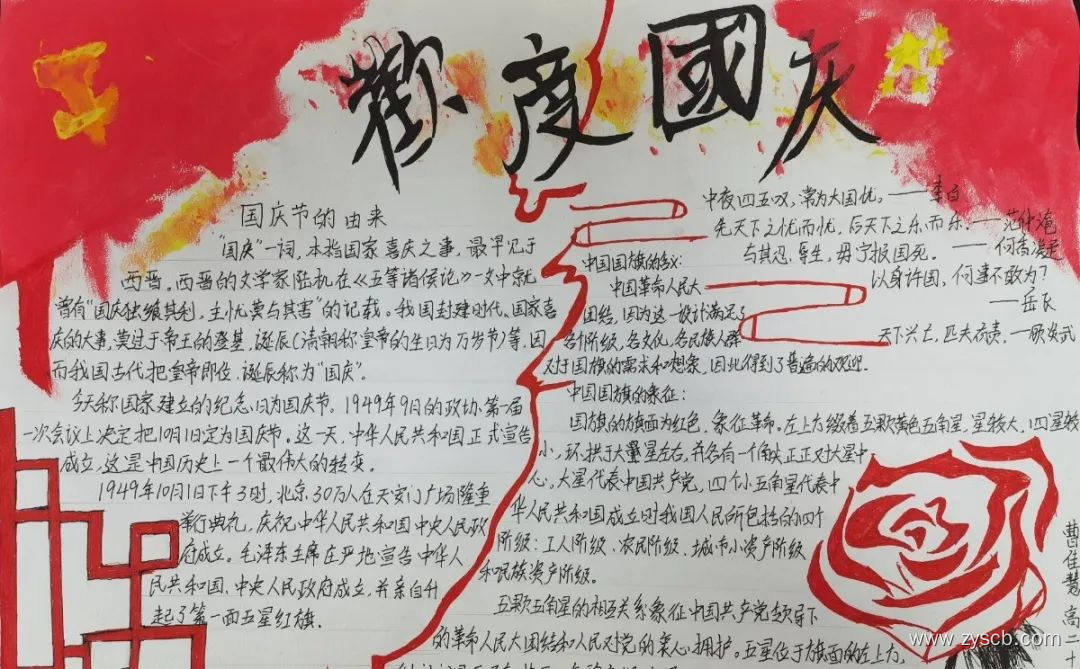 歡度國庆
国庆节的由来
"国庆"一词，本指国家喜庆之事，最早见于
西晋。西晋的文学家陆机在《五等诸侯论》一文中就
曾有"国庆独飨其利，主忧莫与其害"的记载。我国封建时代、国家喜
庆的大事，莫过于帝王的登基、诞辰（清朝称皇帝的生日为万岁节）等，因
而我国古代把皇帝即位、诞辰称为"国庆"。
今天称国家建立的纪念日为国庆节。1949年9月的政协第一届
一次会议上决定把10月1日定为国庆节。这一天，中华人民共和国正式宣告
成立，这是中国历史上一个最伟大的转变。
1949年10月1日下午3时，北京30万人在天安门广场隆重
举行典礼，庆祝中华人民共和国中央人民政
府成立。毛泽东主席庄严地宣告中华人
民共和国、中央人民政府成立，并亲自升
起了第一面五星红旗．
中夜四五叹，常为大国忧。——李白
先天下之忧而忧，后天下之乐而乐——范仲淹
与其忍辱生，毋宁报国死。——何香凝
以身许国，何事不敢为？
——岳飞
天下兴亡，匹夫有责，—顾炎武
中国国旗的
中国革命人民大
团结，因为这一设计满足了
各个阶级、各文化、各民族人群
对于国旗的需求和想象，因此得到了普遍的欢迎．
中国国旗的象征：
国旗的旗面为红色，象征革命。左上方缀着五颗黄色五角星，星较大，四星较
小，环拱于大星左右，并各有一个角尖正对大星中
心。大星代表中国共产党，四个小五角星代表中
华人民共和国成立时我国人民所包括的四个
阶级：工人阶级、农民阶级、城市小资产阶级
和民族资产阶级。
五颗五角星的相互关系象征中国共产党领导下
的革命人民大团结和人民对党的衷心拥护。五星位于旗面的左上方，
曹佳慧 高二
www.zyscb.com